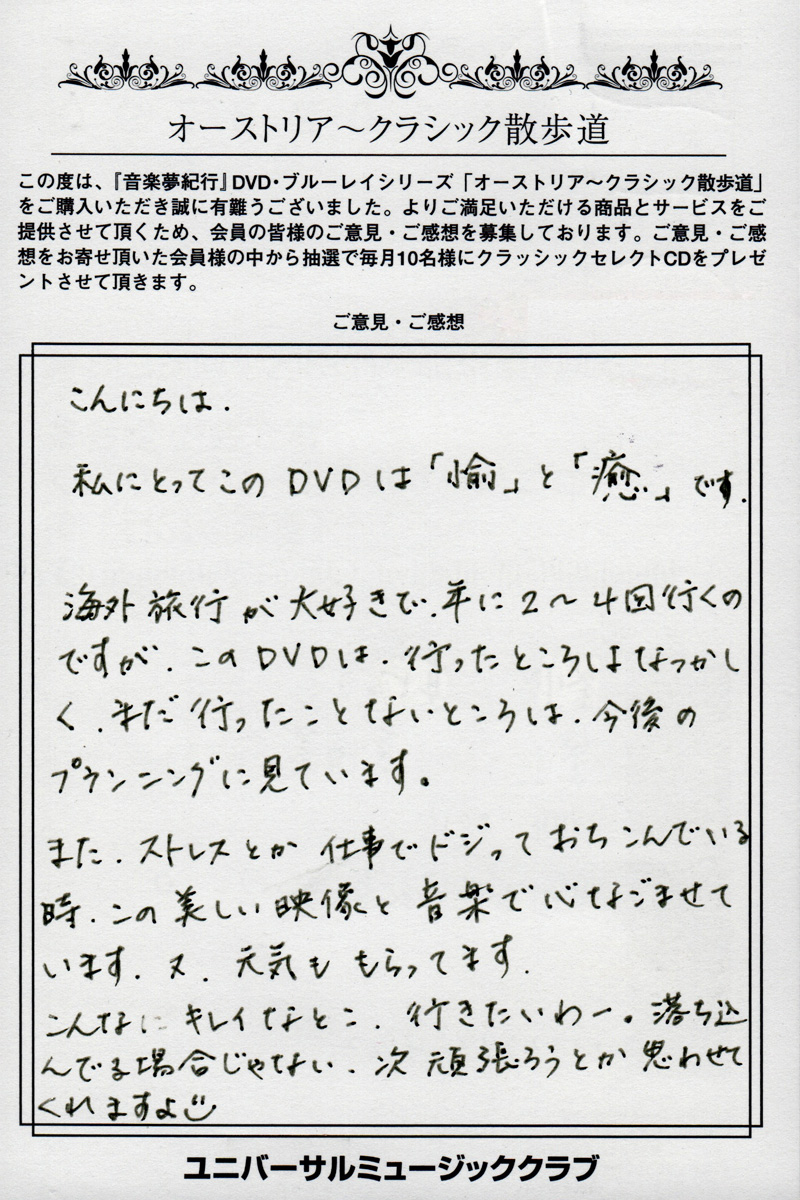 オーストリア～クラシック散歩道
この度は、『音楽夢紀行』DVD・ブルーレイシリーズ「オーストリア～クラシック散歩道」
をご購入いただき誠に有難うございました。よりご満足いただける商品とサービスをご
提供させて頂くため、会員の皆様のご意見・ご感想を募集しております。ご意見・ご感
想をお寄せ頂いた会員様の中から抽選で毎月10名様にクラッシックセレクトCDをプレゼ
ントさせて頂きます。
ご意見・ご感想
こんにちは.
私にとってこの DVD は「愉」と「癒」です.
海外旅行が大好きで.年に2～4回行くの
ですが.このDVDは.行ったところはなつかし
く.まだ行ったことないところは.今後の
プランニングに見ています。
また.ストレスとか 仕事でドジって おちこんでいる
時.この美しい映像と音楽で心なごませて
います.又.元気も もらってます.
こんなに キレイなとこ.行きたいわー。落ち込
んでる場合じゃない.次 頑張ろうとか 思わせて
くれますよ☺
ユニバーサルミュージッククラブ